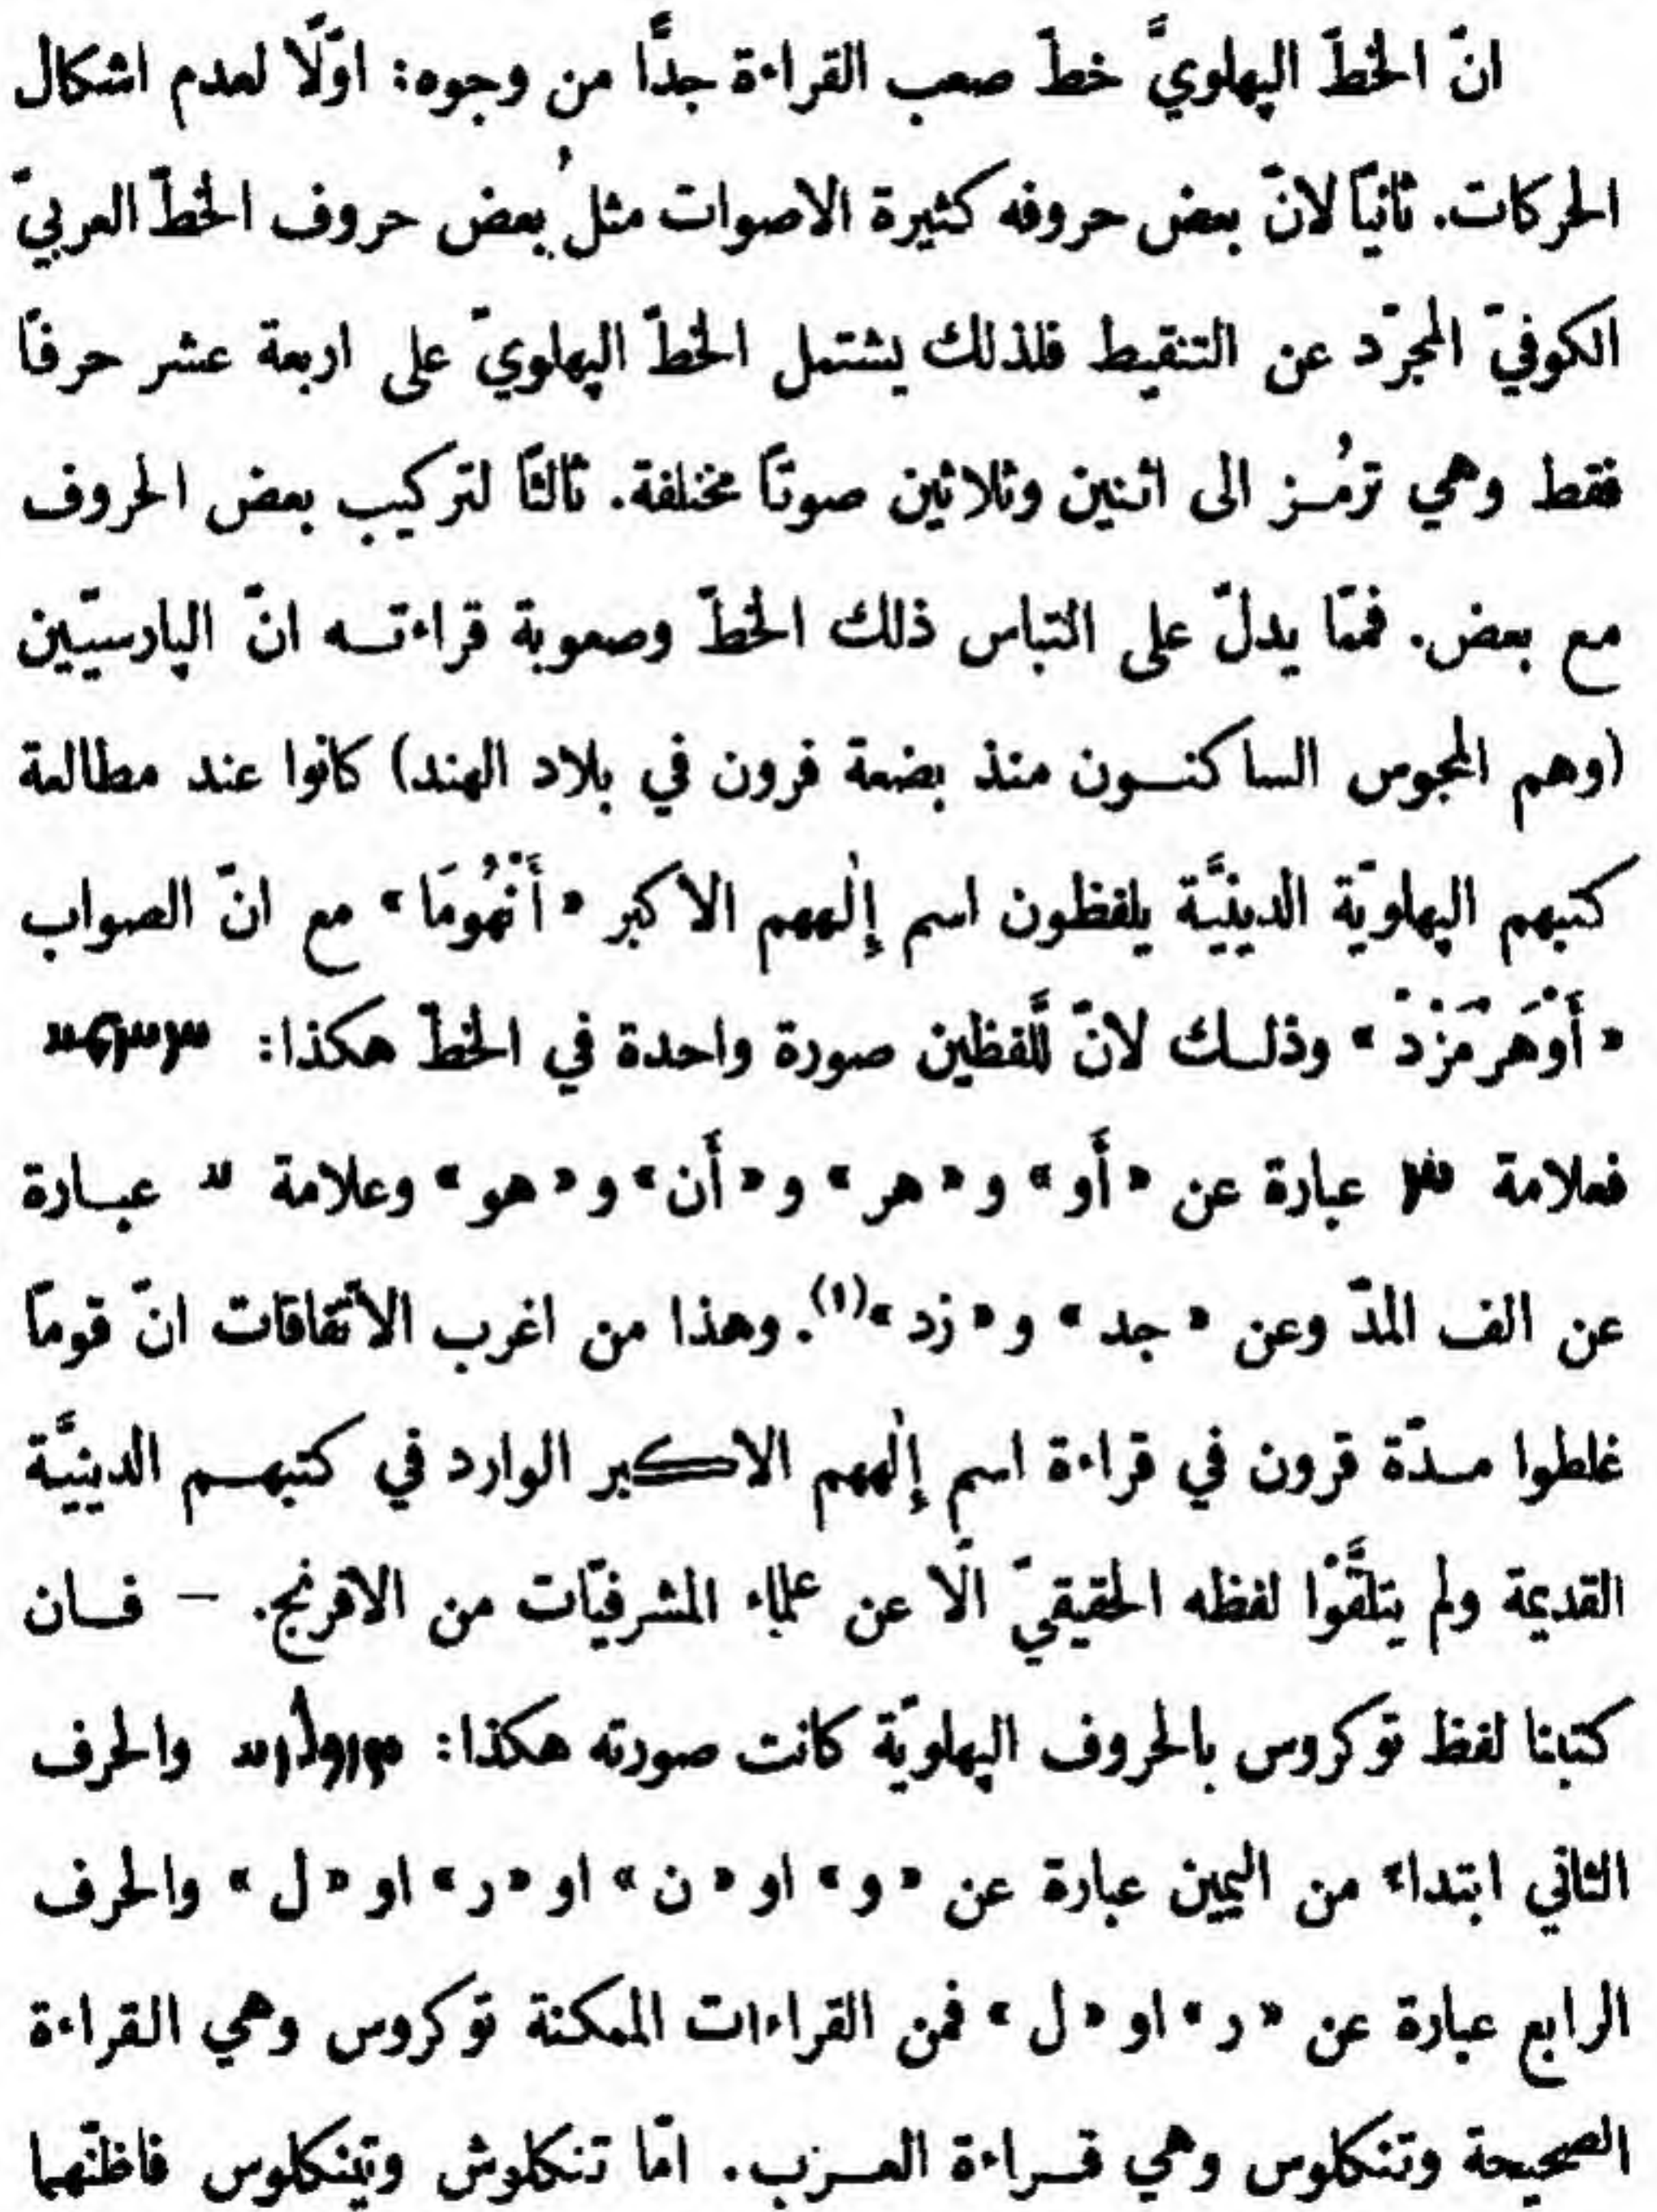 انّ الخطّ الپهلويَّ خطّ صعب القراءة جدًّا من وجوه: اوّلًا لعدم اشكال
الحركات. ثانيًا لانّ بعض حروفه كثيرة الاصوات مثلُ بعض حروف الخطّ العربيّ
الكوفيّ المجرّد عن التنقيط فلذلك يشتمل الخطّ الپهلويّ على اربعة عشر حرفًا
فقط وهي ترمُز الى اثنين وثلاثين صوتًا مختلفة. ثالثًا لتركيب بعض الحروف
مع بعض. فممّا يدلّ على التباس ذلك الخطّ وصعوبة قراءته انّ الپارسيّين
(وهم المجوس الساكنون منذ بضعة قرون في بلاد الهند) كانوا عند مطالعة
كتبهم الپهلويّة الدينيَّة يلفظون اسم إلٰههم الاكبر «أَنْهُومَا» مع انّ الصواب
«أَوْهَرْمَزْدْ» وذلك لانّ لِلَّفظين صورة واحدة في الخطّ هكذا:
فعلامة عبارة عن «أَو» و«هر» و«أَن» و«هو» وعلامة عبارة
عن الف المدّ وعن «جد» و«زد»(١). وهذا من اغرب الاتّفاقات انّ قومًا
غلطوا مدّة قرون في قراءة اسم إلٰههم الاكبر الوارد في كتبهم الدينيَّة
القديمة ولم يتلقَّوْا لفظه الحقيقيّ الّا عن علماء المشرقيّات من الافرنج. – فان
كتبنا لفظ توكروس بالحروف الپهلويّة كانت صورته هكذا: والحرف
الثاني ابتداءً من اليمين عبارة عن «و» او «ن» او «ر» او «ل» والحرف
الرابع عبارة عن «ر» او «ل» فمن القراءات الممكنة توكروس وهي القراءة
الصحيحة وتنكلوس وهي قراءة العرب. امّا تنكلوش وتينكلوس فاظنّهما